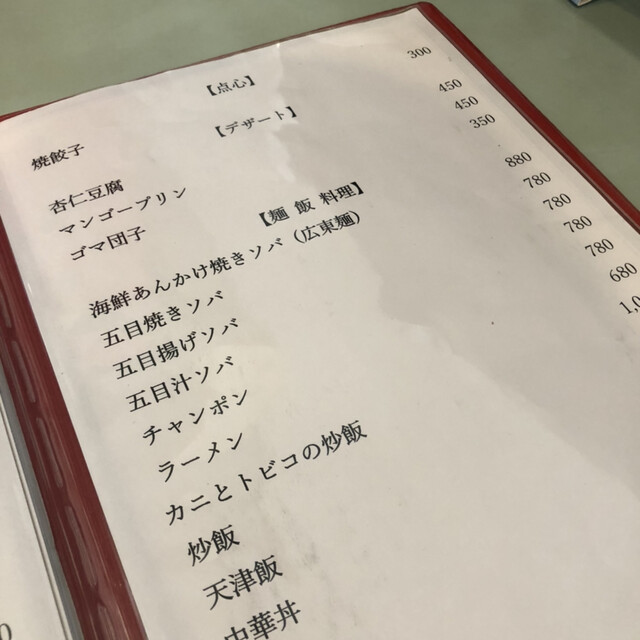 【点心】
焼餃子 300
【デザート】
杏仁豆腐 450
マンゴープリン 450
ゴマ団子 350
【麺 飯 料理】
海鮮あんかけ焼きソバ（広東麺） 880
五目焼きソバ 780
五目揚げソバ 780
五目汁ソバ 780
チャンポン 780
ラーメン 680
カニとトビコの炒飯 1,0
炒飯
天津飯
中華丼